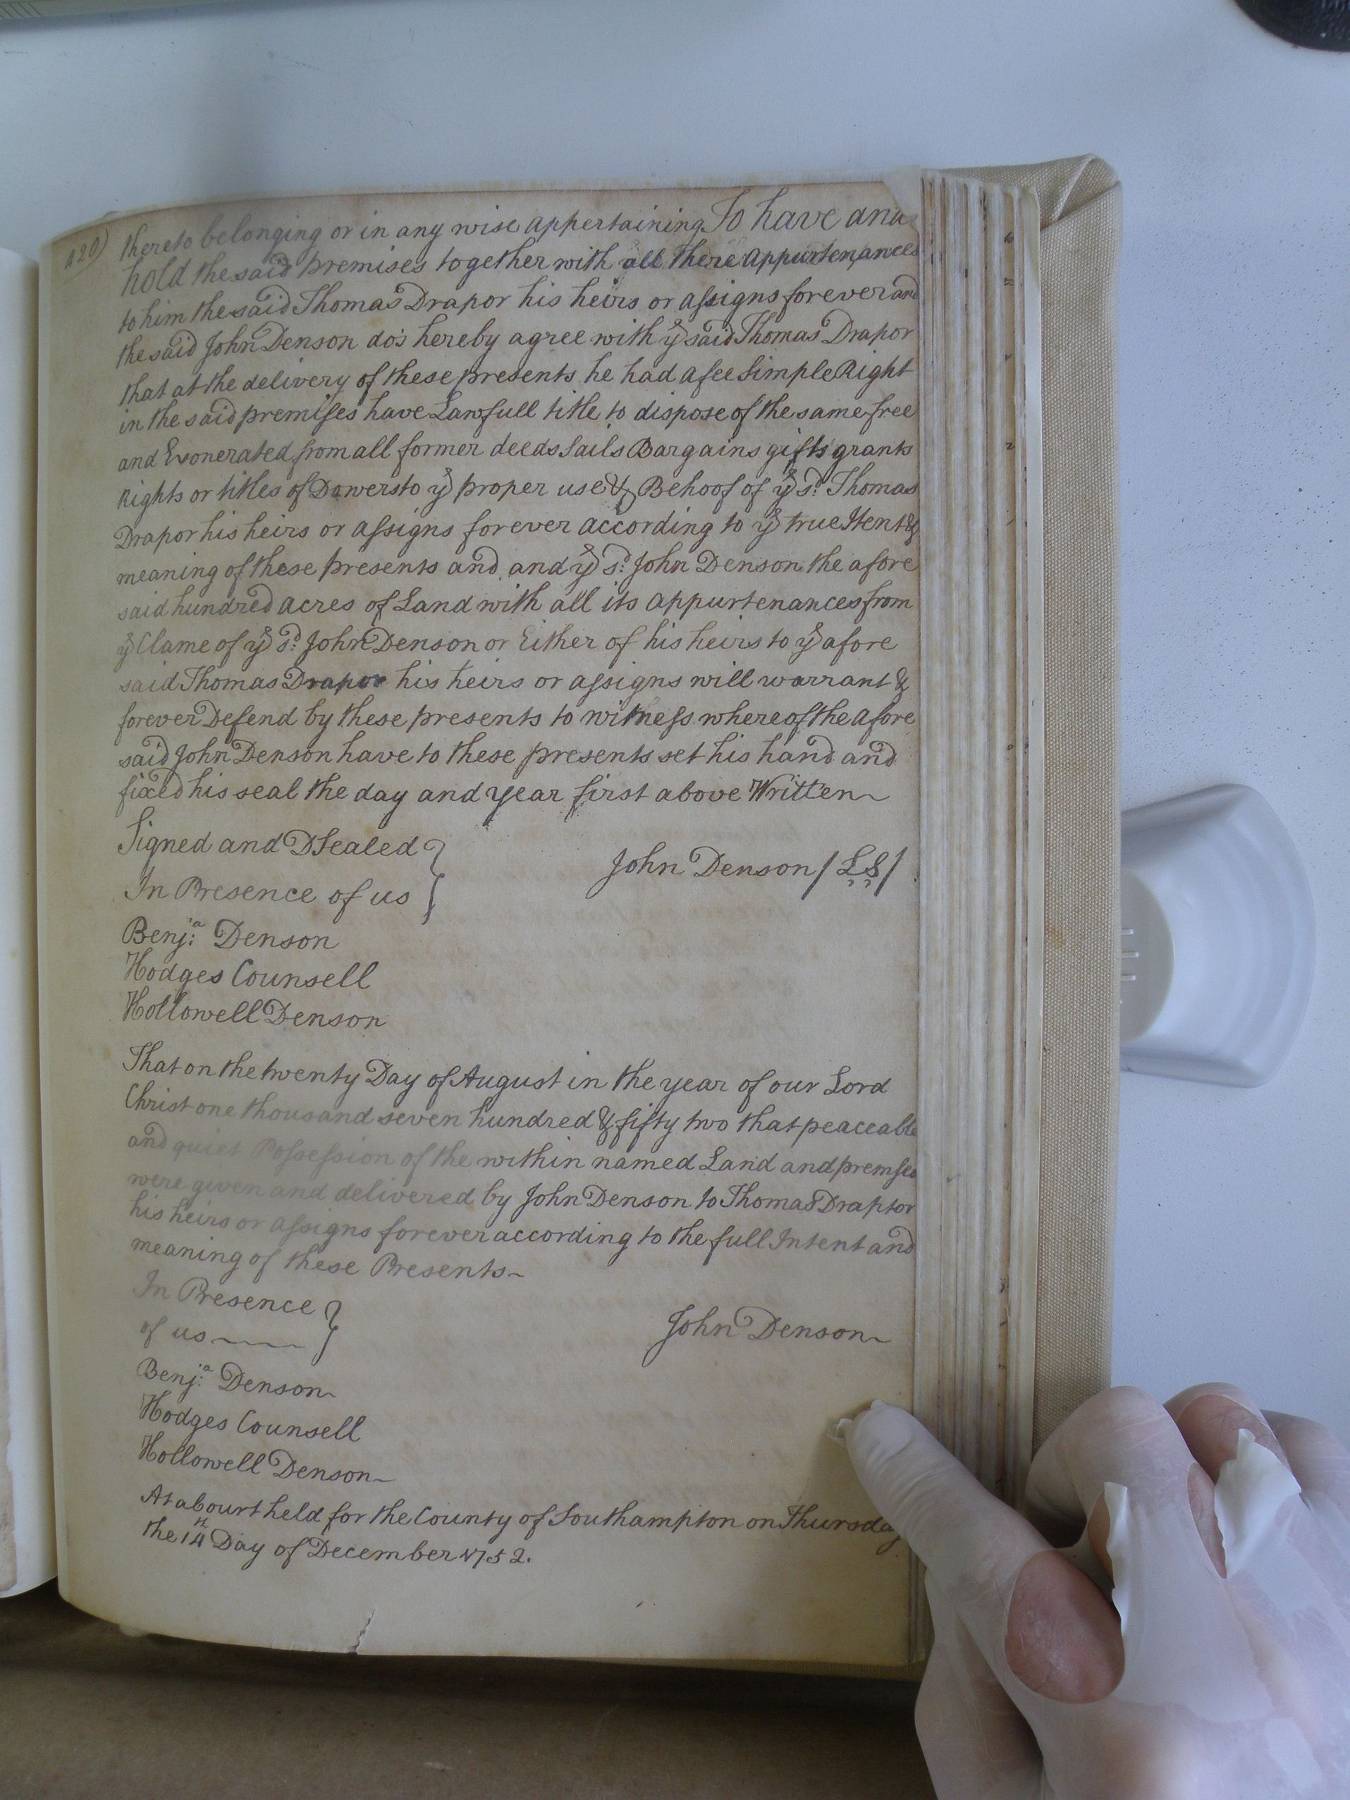 420) thereto belonging or in any wise appertaining To have and
hold the said premises together with all there appurtenances
to him the said Thomas Drapor his heirs or assigns forever and
the said John Denson do's hereby agree with ye said Thomas Drapor
that at the delivery of these presents he had a fee Simple Right
in the said premisses have Lawfull title to dispose of the same free
and Exonerated from all former deeds Sails Bargains gifts grants
Rights or titles of Dowers to ye proper use & Behoof of ye sd. Thomas
Drapor his heirs or assigns forever according to ye true Itent &
meaning of these presents and and ye sd. John Denson the afore
said hundred acres of Land with all its appurtenances from
ye Clame of ye sd. John Denson or Either of his heirs to ye afore
said Thomas Drapor his heirs or assigns will warrant &
forever Defend by these presents to witness whereof the afore
said John Denson have to these presents set his hand and
fixed his seal the day and year first above Written
Signed and DSealed
In Presence of us
John Denson / LS /
Benja: Denson
Hodges Counsell
Hollowell Denson
That on the twenty Day of August in the year of our Lord
Christ one thousand seven hundred & fifty two that peaceable
and quiet Possession of the within named Land and premses
were given and delivered by John Denson to Thomas Draptor
his heirs or assigns forever according to the full Intent and
meaning of these Presents
In Presence
of us
John Denson
Benja: Denson
Hodges Counsell
Hollowell Denson
At a bourt held for the County of Southampton on Thursday
the 14th Day of December 1752.